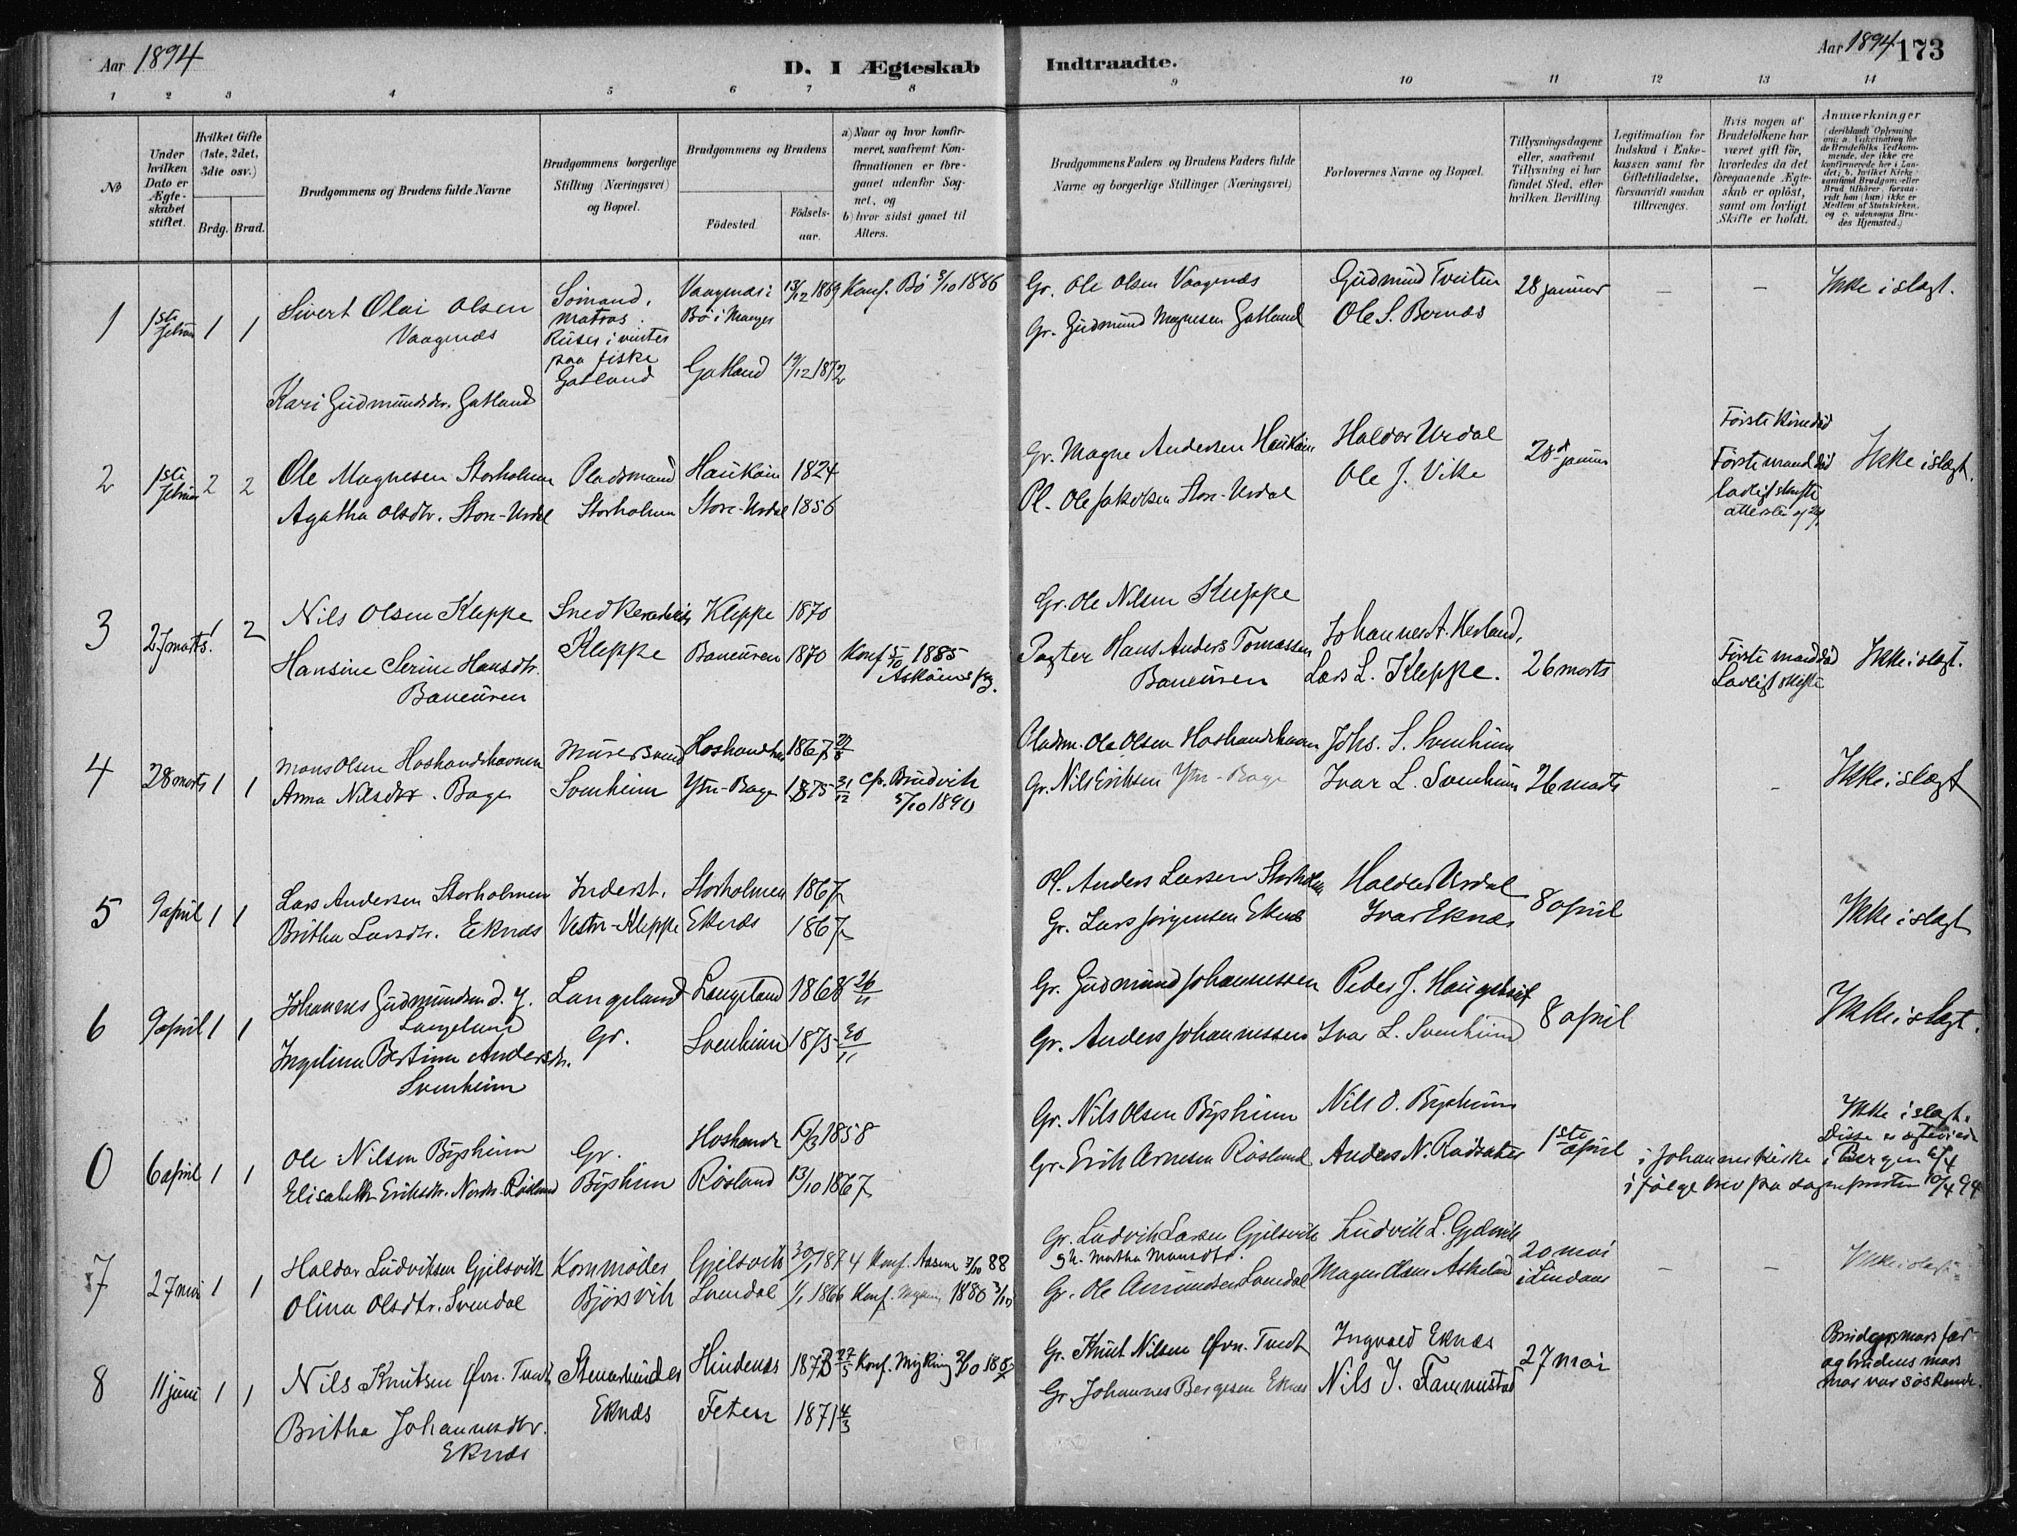 Aar 1894
D. I Ægteskab Indtraadte.
Aar 1894 173
1 2 3 4 5 6 7 8 9 10 11 12 13 14
№
Under hvilken Dato er Ægteskabet stiftet.
Hvilket Gifte (1ste, 2det, 3die osv.)
Brdg. Brud.
Brudgommens og Brudens fulde Navne
Brudgommens borgerlige Stilling (Næringsvei) og Bopæl.
Brudgommens og Brudens
Fødested.
Fødselsaar.
a) Naar og hvor konfirmeret, saafremt Konfirmationen er foregaaet udenfor Sognet, og
b) hvor sidst gaaet til Alters.
Brudgommens Faders og Brudens Faders fulde Navne og borgerlige Stillinger (Næringsvei)
Forlovernes Navne og Bopæl.
Tillysningsdagene eller, saafremt Tillysning ei har fundet Sted, efter hvilken Bevilling.
Legitimation for Indskud i Enkekassen samt for Giftetilladelse, forsaavidt saadan tiltrænges.
Hvis nogen af Brudefolkene har været gift før, hvorledes da det foregaaende Ægteskab er opløst, samt om lovligt Skifte er holdt.
Anmærkninger
(deriblandt Oplysning om: a. Vakcination for de Brudefolks Vedkommende, der ikke ere konfirmerede her i Landet; b. hvilket Kirkesamfund Brudgom eller Brud tilhører, forsaavidt han (hun) ikke er Medlem af Statskirken, og c. udensogns Brudes Hjemsted.)
1 1ste februar 1 1
Sivert Olai Olsen
Vaagenæs
Kari Gudmundsdr. Gatland
Sømand,
matros.
Reiser i vinter
paa fiske
Gatland
Vaagenæs i
Bø i Manger
Gatland
13/12 1869
19/12 1872
Konf. Bø 3/10 1886
Gr. Ole Olsen Vaagenæs
Gr. Gudmund Magnesen Gatland
Gudmund Tveiten
Ole S. Bernæs
28 januar
—
—
Ikke i slægt.
2 1ste februar 2 2
Ole Magnesen Storholmen
Agatha Olsdtr. Store-Urdal
Pladsmand
Storholmen
Haukøen 1824
Store-Urdal 1856
Gr. Magne Andersen Haukøen
Pl. Ole Jakobsen Store-Urdal
Haldor Urdal
Ole J. Vike
28de januar
Første kone død
Første mand død
lovligt skifte
Ikke i slægt.
3 27 marts. 1 2
Nils Olsen Kleppe
Hansine Serine Hansdtr.
Baneuren
Kleppe
Kleppe 1870
Baneuren 1870
Konf 5/10 1885
Askøens pg.
Gr. Ole Nilsen Kleppe
Pagter Hans Anders Tomassen
Baneuren
Johannes A. Herland,
Lars L. Kleppe.
26 marts
Første mand død
Lovligt skifte
Ikke i slægt.
4 28 marts 1 1
Mons Olsen Hoshandshavnen
Anna Nilsdtr. Bage
Murersvend
Svenheim
1867 27/8
Ytre-Bage 1875 31/12
Cfr. Bruvik
5/10 1890
Pladsm. Ole Olsen Hoshandshavnen
Gr. Nils Eriksen Ytre-Bage
Johs. S. Svenheim
Ivar L. Svenheim
26 marts
-
Ikke i slægt
5 9 april 1 1
Lars Andersen Storholmen
Britha Larsdtr. Eknæs
Inderst.
Vestre-Kleppe
Storholmen 1867
Eknæs 1867
Pl. Anders Larsen Storholmen
Gr. Lars Jørgensen Eknæs
Haldor Urdal
Ivar Eknæs
8 april
Ikke i slægt
6 9 april 1 1
Johannes Gudmundsen d. y.
Langeland
Ingelina Bertine Andersdtr.
Svenheim
Langeland
Gr.
Langeland 1868 26/11
Svenheim 1875 30/11
Gr. Gudmund Johannessen
Gr. Anders Johannessen
Peder J. Haugstvet
Ivar L. Svenheim
8 april
Ikke i slægt.
0 6 april 1 1
Ole Nilsen Bysheim
Elisabeth Eriksdtr. Nordre Røsland
Gr.
Bysheim
Hoshand 1858
Røsland 13/10 1867
Gr. Nils Olsen Bysheim
Gr. Erik Arnesen Røsland
Nils O. Bysheim
Anders N. Rødsæter
1ste april
Ikke i slægt.
Disse er ægteviede
i Johanneskirke i Bergen 6/4
i følge brev fra sognepresten 10/4 94
7 27 mai 1 1
Haldor Ludviksen Gjelsvik
Olina Olsdtr. Svendal
Kornmøller
Bjørsvik
Gjelsvik 30/1 1874
Svendal 1/1 1866
Konf. Aasene 7/10 88
Konf. Myking 1880 3/10
Gr. Ludvik Larsen Gjelsvik
gh. Martha Monsdtr.
Gr. Ole Amundsen Svendal
Ludvik L. Gjelsvik
Magne Olsen Askeland
20 mai
i Lindaas
—
—
Ikke i slægt
8 11 juni 1 1
Nils Knutsen Øvre Tvedt
Britha Johannesdtr.
Eknæs
Stenarbeider
Eknæs
Hindenæs 1873 27/5
Feten 1871 4/3
Konf. Myking
Gr. Knut Nilsen Øvre Tvedt
Gr. Johannes Børgesen Eknæs
Ingvald Eknæs
Nils J. Fammestad
27 mai
Brudgommens far
og brudens mors
mor var søskende.